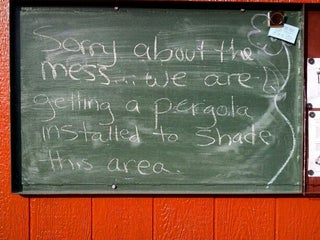 Sorry about the
mess... we are
getting a pergola
installed to shade
this area.